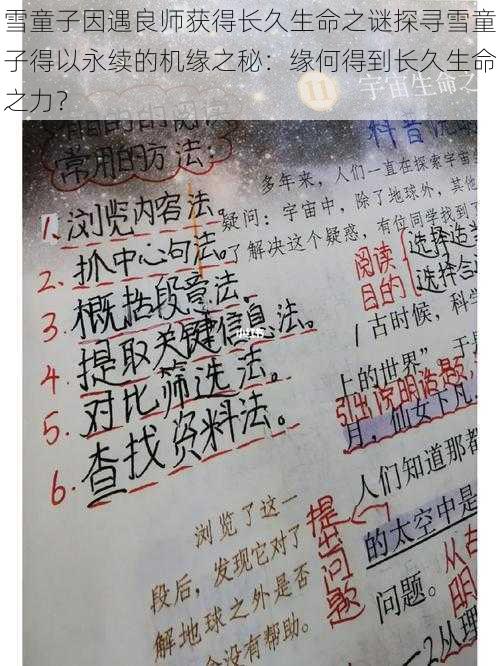 雪童子因遇良师获得长久生命之谜探寻雪童
子得以永续的机缘之秘：缘何得到长久生命
之力？
11
宇宙生命之
常用的方法：
1.浏览内容法。
2.抓中心句法。
3.概括段意法。
4.提取关键信息法。
5.对比筛选法。
6.查找资料法。
浏览了这一
段后，发现它对了
解地球之外是否
没有帮助。
科普说明
多年来，人们一直在探索宇宙
疑问：宇宙中，除了地球外，其他
了解决这个疑惑，有位同学找到了
阅读
目的
选择适当
选择合适
1
古时候，科学
上的世界”。于是
引出说明话题，
月，仙女下凡
人们知道那都
提出问题
的太空中是
问题。
从古
明
2从理